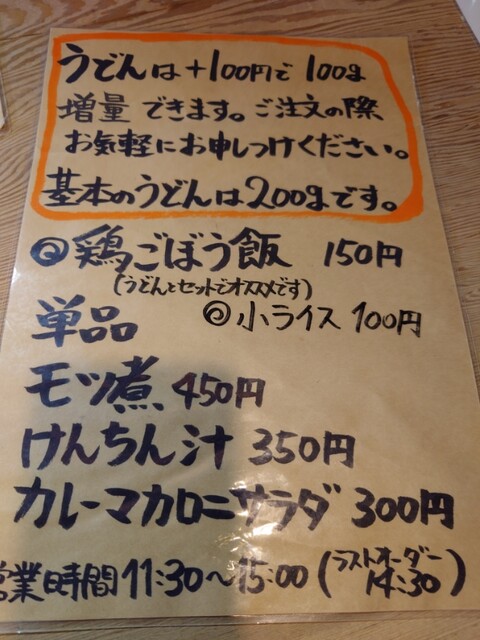 うどんは+100円で100g
増量できます。ご注文の際
お気軽にお申しつけください。
基本のうどんは200gです。
◎鶏ごぼう飯 150円
(うどんとセットでオススメです)
単品 ◎小ライス 100円
モツ煮 450円
けんちん汁 350円
カレーマカロニサラダ 300円
営業時間11:30〜15:00(ラストオーダー14:30)